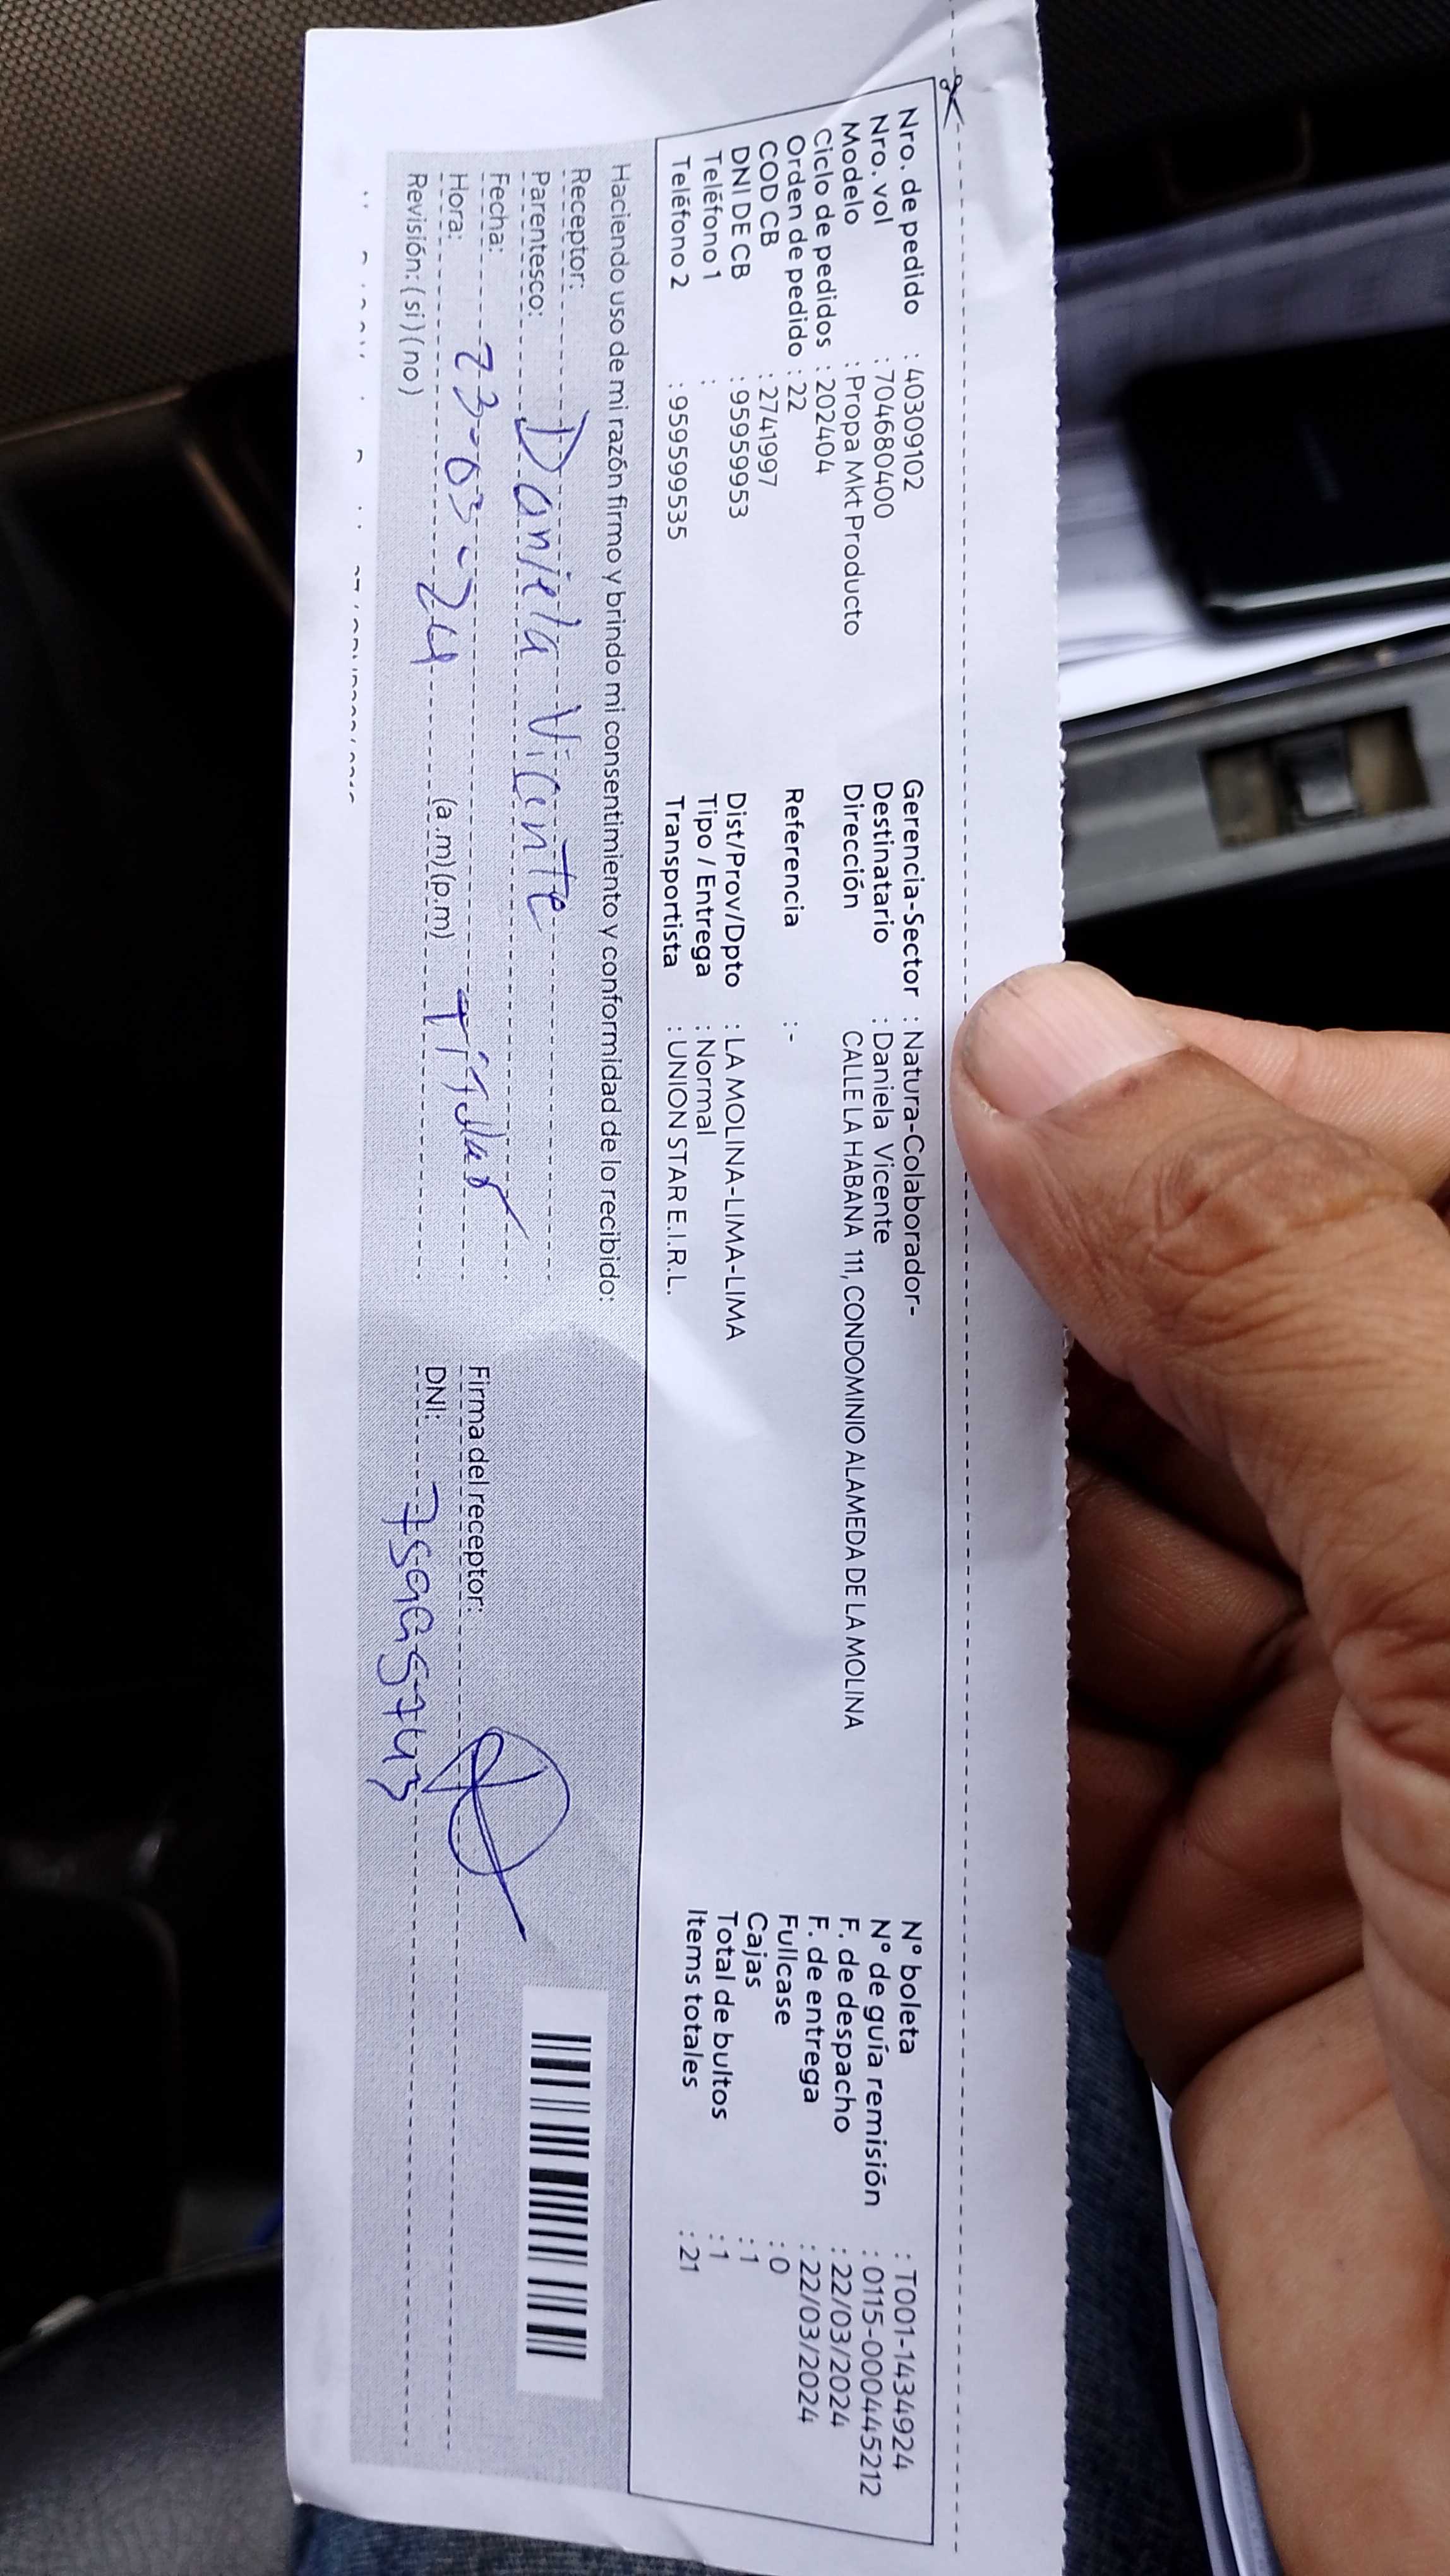 Nro. de pedido : 40309102
Nro. vol : 704680400
Modelo : Propa Mkt Producto
Ciclo de pedidos : 202404
Orden de pedido : 22
COD CB : 2741997
DNI DE CB : 95959953
Teléfono 1 :
Teléfono 2 : 959599535
Gerencia-Sector : Natura-Colaborador-
Destinatario : Daniela Vicente
Dirección CALLE LA HABANA 111, CONDOMINIO ALAMEDA DE LA MOLINA
Referencia : -
Dist/Prov/Dpto : LA MOLINA-LIMA-LIMA
Tipo / Entrega : Normal
Transportista : UNION STAR E.I.R.L.
N° boleta : T001-1434924
N° de guía remisión : 0115-000445212
F. de despacho : 22/03/2024
F. de entrega : 22/03/2024
Fullcase : 0
Cajas : 1
Total de bultos : 1
Items totales : 21
Haciendo uso de mi razón firmo y brindo mi consentimiento y conformidad de lo recibido:
Receptor: Daniela Vicente
Parentesco: Titular
Fecha: 23-03-24
Hora: (a.m)(p.m)
Revisión: (si)(no)
Firma del receptor:
DNI: